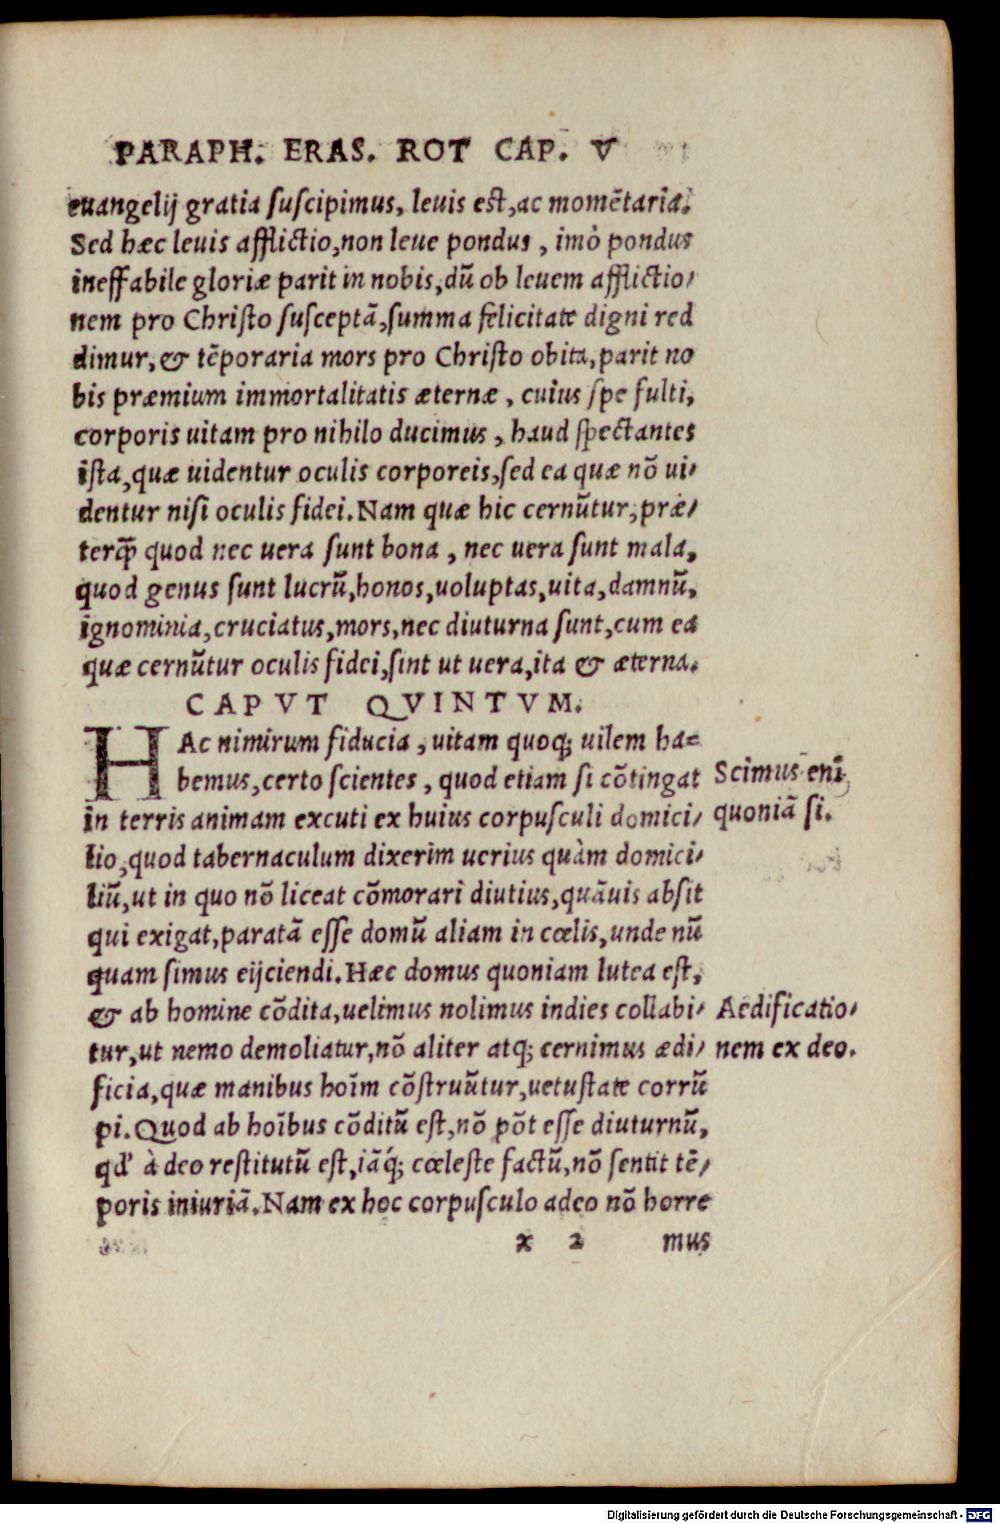 PARAPH. ERAS. ROT CAP. V
euangelij gratia suscipimus, leuis est, ac momētaria.
Sed hæc leuis afflictio, non leue pondus, imò pondus
ineffabile gloriæ parit in nobis, dū ob leuem afflictio-
nem pro Christo susceptā, summa felicitate digni red
dimur, & tēporaria mors pro Christo obita, parit no
bis præmium immortalitatis æternæ, cuius spe fulti,
corporis uitam pro nihilo ducimus, haud spectantes
ista, quæ uidentur oculis corporeis, sed ea quæ nō ui-
dentur nisi oculis fidei. Nam quæ hic cernūtur, præ-
terq̃ quod nec uera sunt bona, nec uera sunt mala,
quod genus sunt lucrū, honos, uoluptas, uita, damnū,
ignominia, cruciatus, mors, nec diuturna sunt, cum ea
quæ cernūtur oculis fidei, sint ut uera, ita & æterna.
CAPVT QVINTVM.
HAc nimirum fiducia, uitam quoq; uilem ha-
bemus, certo scientes, quod etiam si cōtingat
Scimus enī
in terris animam excuti ex huius corpusculi domici-
quoniā si.
lio, quod tabernaculum dixerim uerius quàm domici-
liū, ut in quo nō liceat cōmorari diutius, quāuis absit
qui exigat, paratā esse domū aliam in cœlis, unde nū
quam simus eijciendi. Hæc domus quoniam lutea est,
& ab homine cōdita, uelimus nolimus indies collabi-
Aedificatio-
tur, ut nemo demoliatur, nō aliter atq; cernimus ædi-
nem ex deo.
ficia, quæ manibus hoīm cōstruūtur, uetustate corrū
pi. Quod ab hoībus cōditū est, nō pōt esse diuturnū,
qd' à deo restitutū est, iāq́; cœleste factū, nō sentit tē-
poris iniuriā. Nam ex hoc corpusculo adeo nō horre
x 2 mus
Digitalisierung gefördert durch die Deutsche Forschungsgemeinschaft - DFG